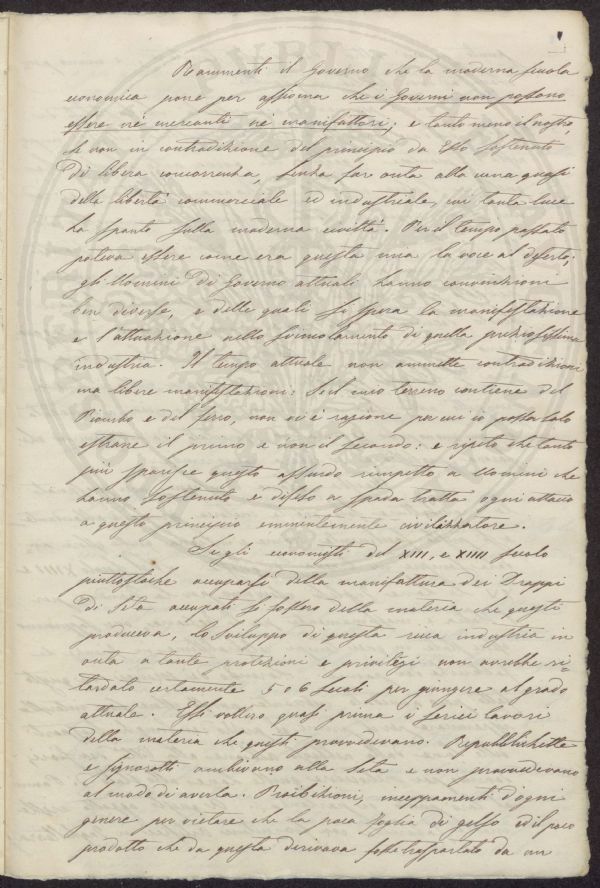 Rammenti il Governo che la moderna scuola
economica pone per assioma che i Governi non possono
essere nè mercanti nè manifattori; e tanto meno il nostro,
se non in contradizione del principio da Esso sostenuto
di libera concorrenza, senza far onta alla cuna quasi
della libertà commerciale ed industriale, cui tanta luce
ha spanto sulla moderna civiltà. Per il tempo passato
poteva essere come era questa una la voce al deserto;
gli Uomini di Governo attuali hanno convinzioni
ben diverse, e delle quali si spera la manifestazione
e l'attuazione nello svincolamento di quella preziosissima
industria. Il tempo attuale non ammette contradizioni
ma libere manifestazioni: Se il mio terreno contiene del
Piombo e del ferro, non vi è ragione per cui io possa solo
estrarre il primo e non il secondo: e ripeto che tanto
più apparisce questo assurdo rimpetto a Uomini che
hanno sostenuto e difeso a spada tratta ogni attacco
a questo principio eminentemente civilizzatore.
Se gli economisti del XIII, e XIIII secolo
piuttostoche occuparsi della manifattura dei Drappi
di Seta occupati si fossero della materia che questi
produceva, lo sviluppo di questa ricca industria in
onta a tante protezioni e privilegi non avrebbe ri-
tardato certamente 5 o 6 secoli per giungere al grado
attuale. Essi vollero quasi prima i serici lavori
della materia che questi provvedevano. Repubblichette
e signorotti ambivano alla Seta e non provvedevano
al modo di averla. Proibizioni, inceppamenti d'ogni
genere per vietare che la poca foglia di gelso ed il poco
prodotto che da questa derivava fosse trasportato da un